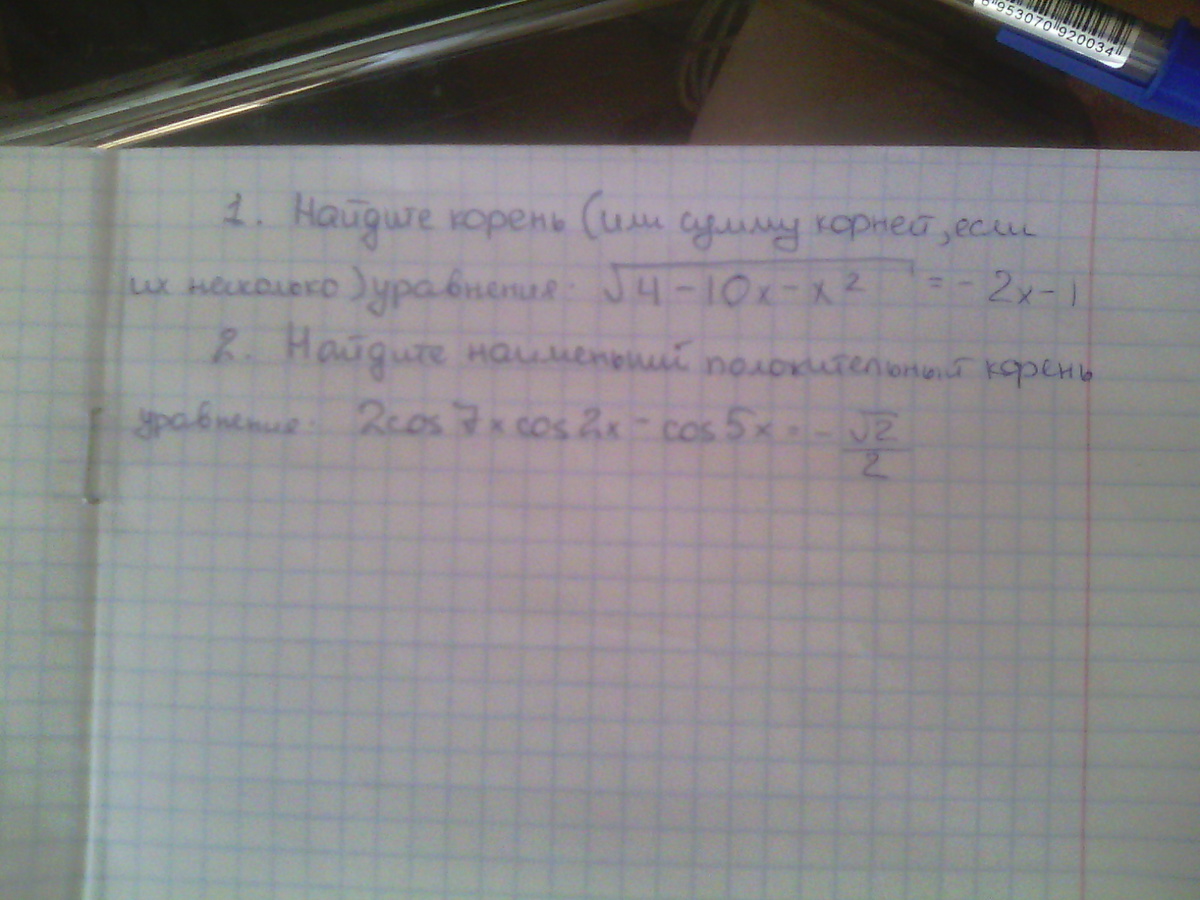 8 953070 920034
1. Найдите корень (или сумму корней, если
их несколько) уравнения: √4-10x-x² = -2x-1
2. Найдите наименьший положительный корень
уравнение: 2cos7x cos2x - cos5x = -√2/2